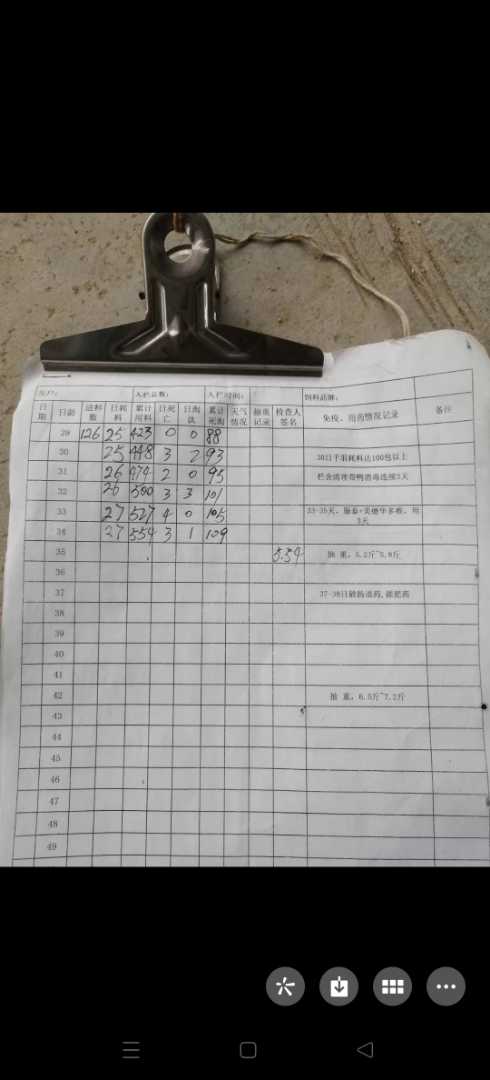 入栏总数： 入栏时间： 饲料品牌：
日期 日龄 进料数 日耗料 累计用料 日死亡 日淘汰 累计死淘 天气情况 抽重记录 检查人签名 免疫、用药情况记录 备注
29 126 25 423 0 0 88
30 25 448 3 2 93 30日千羽耗料达100包以上
31 26 474 2 0 95
32 26 500 3 3 101
33 27 527 4 0 105
34 27 554 3 1 109
35 5.54 抽重：5.2斤~5.8斤
36
37
38
39
40
41
42 抽重：6.5斤~7.2斤
43
44
45
46
47
48
49